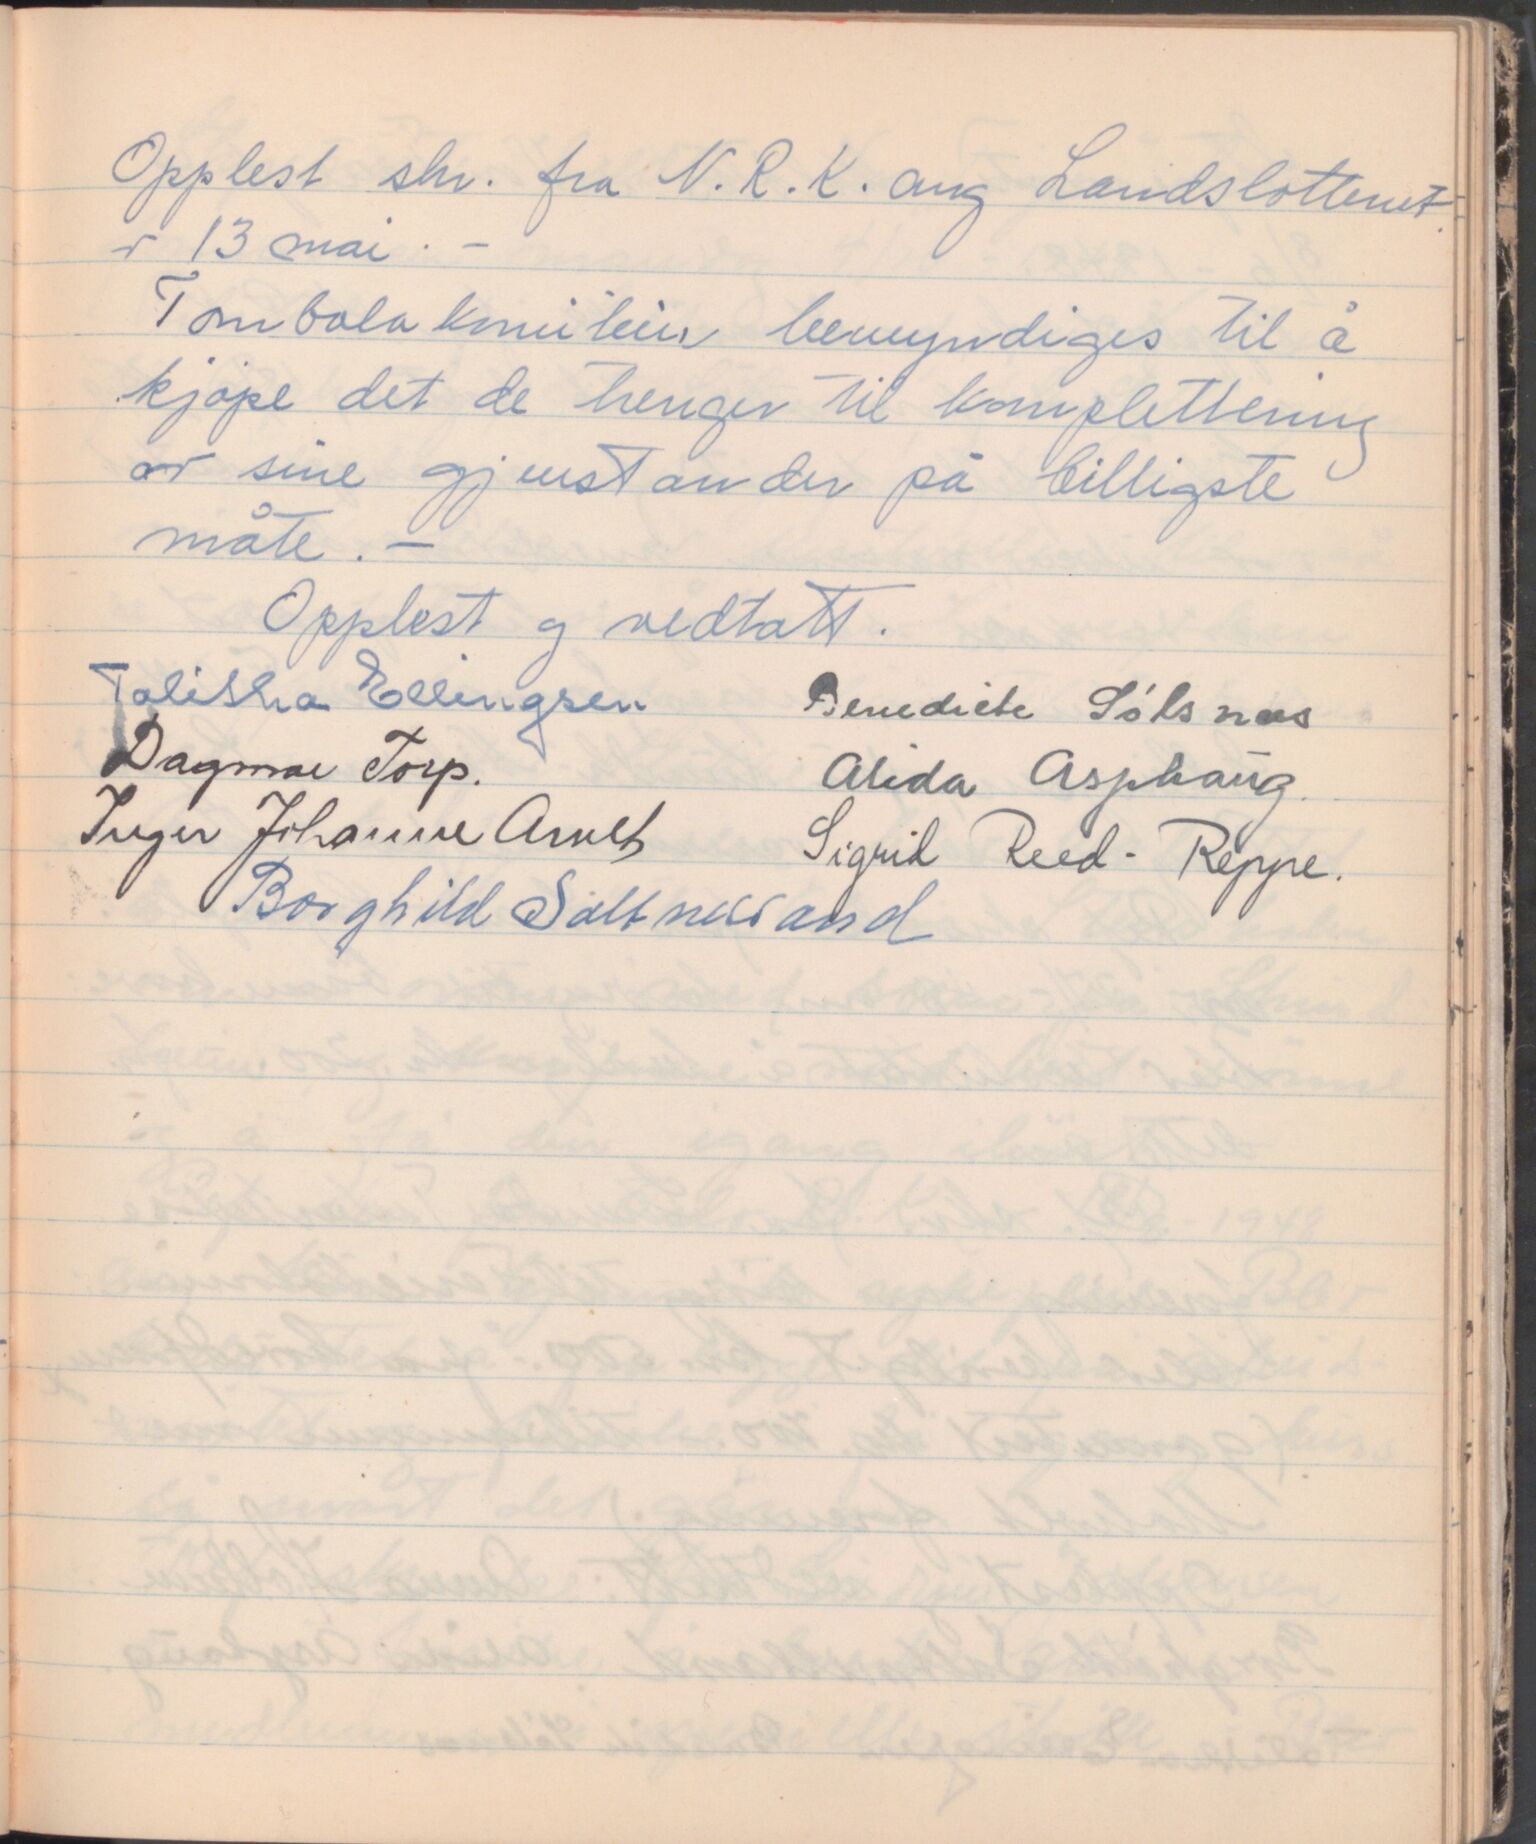 Opplest skr. fra N.R.K. ang Landslotteriet
av 13 mai. -
Tombolakomiteen bemyndiges til å
kjøpe det de trenger til komplettering
av sine gjenstander på billigste
måte. -
Opplest og vedtatt.
Talitha Ellingsen Benedicte Sølsnæs
Dagmar Torp. Alida Asphaug.
Inger Johanne Arnet Sigrid Reed-Reppe.
Borghild Saltnessand